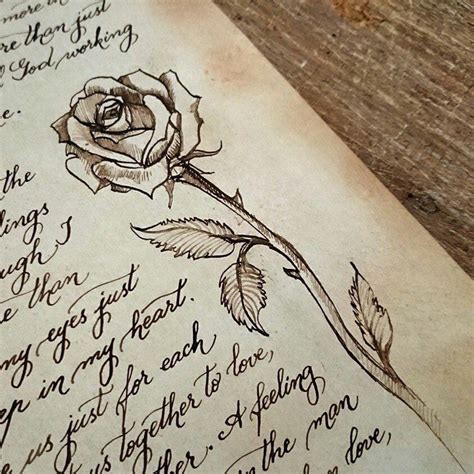 more in
re than just
God working
e.
the
lings
ough I
e than
my eyes just
ep in my heart.
us just for each
us together to love,
ther. A feeling
in the man
on love,